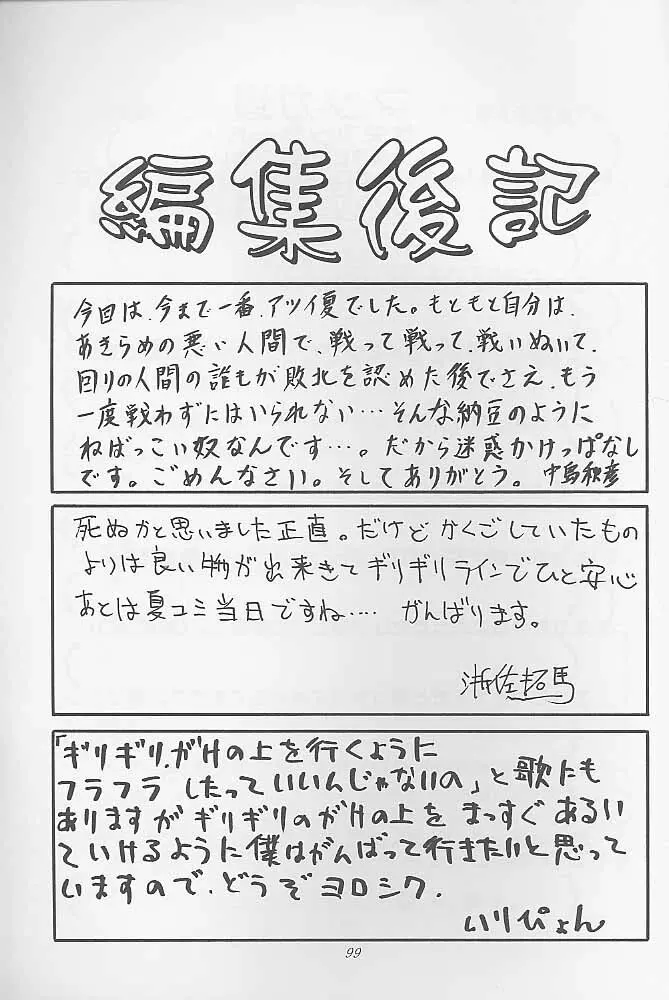 編集後記
今回は、今まで一番、アツイ夏でした。もともと自分は、
あきらめの悪い人間で、戦って戦って、戦いぬいて、
回りの人間の誰もが敗北を認めた後でさえ、もう
一度戦わずにはいられない…そんな納豆のように
ねばっこい奴なんです…。だから迷惑かけっぱなし
です。ごめんなさい。そしてありがとう。 中島秋彦
死ぬかと思いました正直。だけど かくごしていたもの
よりは良い物が出来きてギリギリラインでひと安心
あとは夏コミ当日ですね…. がんばります。
佐拓馬
「ギリギリ、がけの上を行くように
フラフラ したっていいんじゃないの」と歌にも
ありますが ギリギリのがけの上を まっすぐ あるい
ていけるように 僕はがんばって行きたいと思って
いますので、どうぞ ヨロシク.
いりぴょん
99